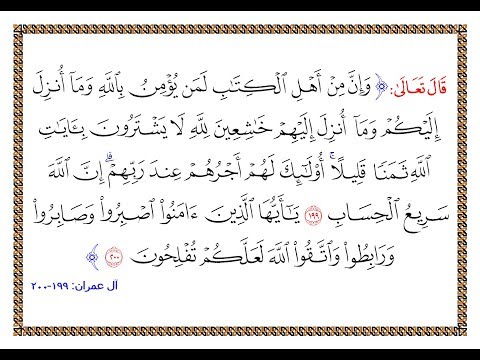 قَالَ تَعَالَىٰ: ﴿ وَإِنَّ مِنْ أَهْلِ ٱلْكِتَٰبِ لَمَن يُؤْمِنُ بِٱللَّهِ وَمَآ أُنزِلَ
إِلَيْكُمْ وَمَآ أُنزِلَ إِلَيْهِمْ خَٰشِعِينَ لِلَّهِ لَا يَشْتَرُونَ بِـَٔايَٰتِ
ٱللَّهِ ثَمَنًا قَلِيلًا ۗ أُو۟لَٰٓئِكَ لَهُمْ أَجْرُهُمْ عِندَ رَبِّهِمْ ۗ إِنَّ ٱللَّهَ
سَرِيعُ ٱلْحِسَابِ ١٩٩ يَٰٓأَيُّهَا ٱلَّذِينَ ءَامَنُوا۟ ٱصْبِرُوا۟ وَصَابِرُوا۟
وَرَابِطُوا۟ وَٱتَّقُوا۟ ٱللَّهَ لَعَلَّكُمْ تُفْلِحُونَ ٢٠٠ ﴾
آل عمران: ١٩٩-٢٠٠